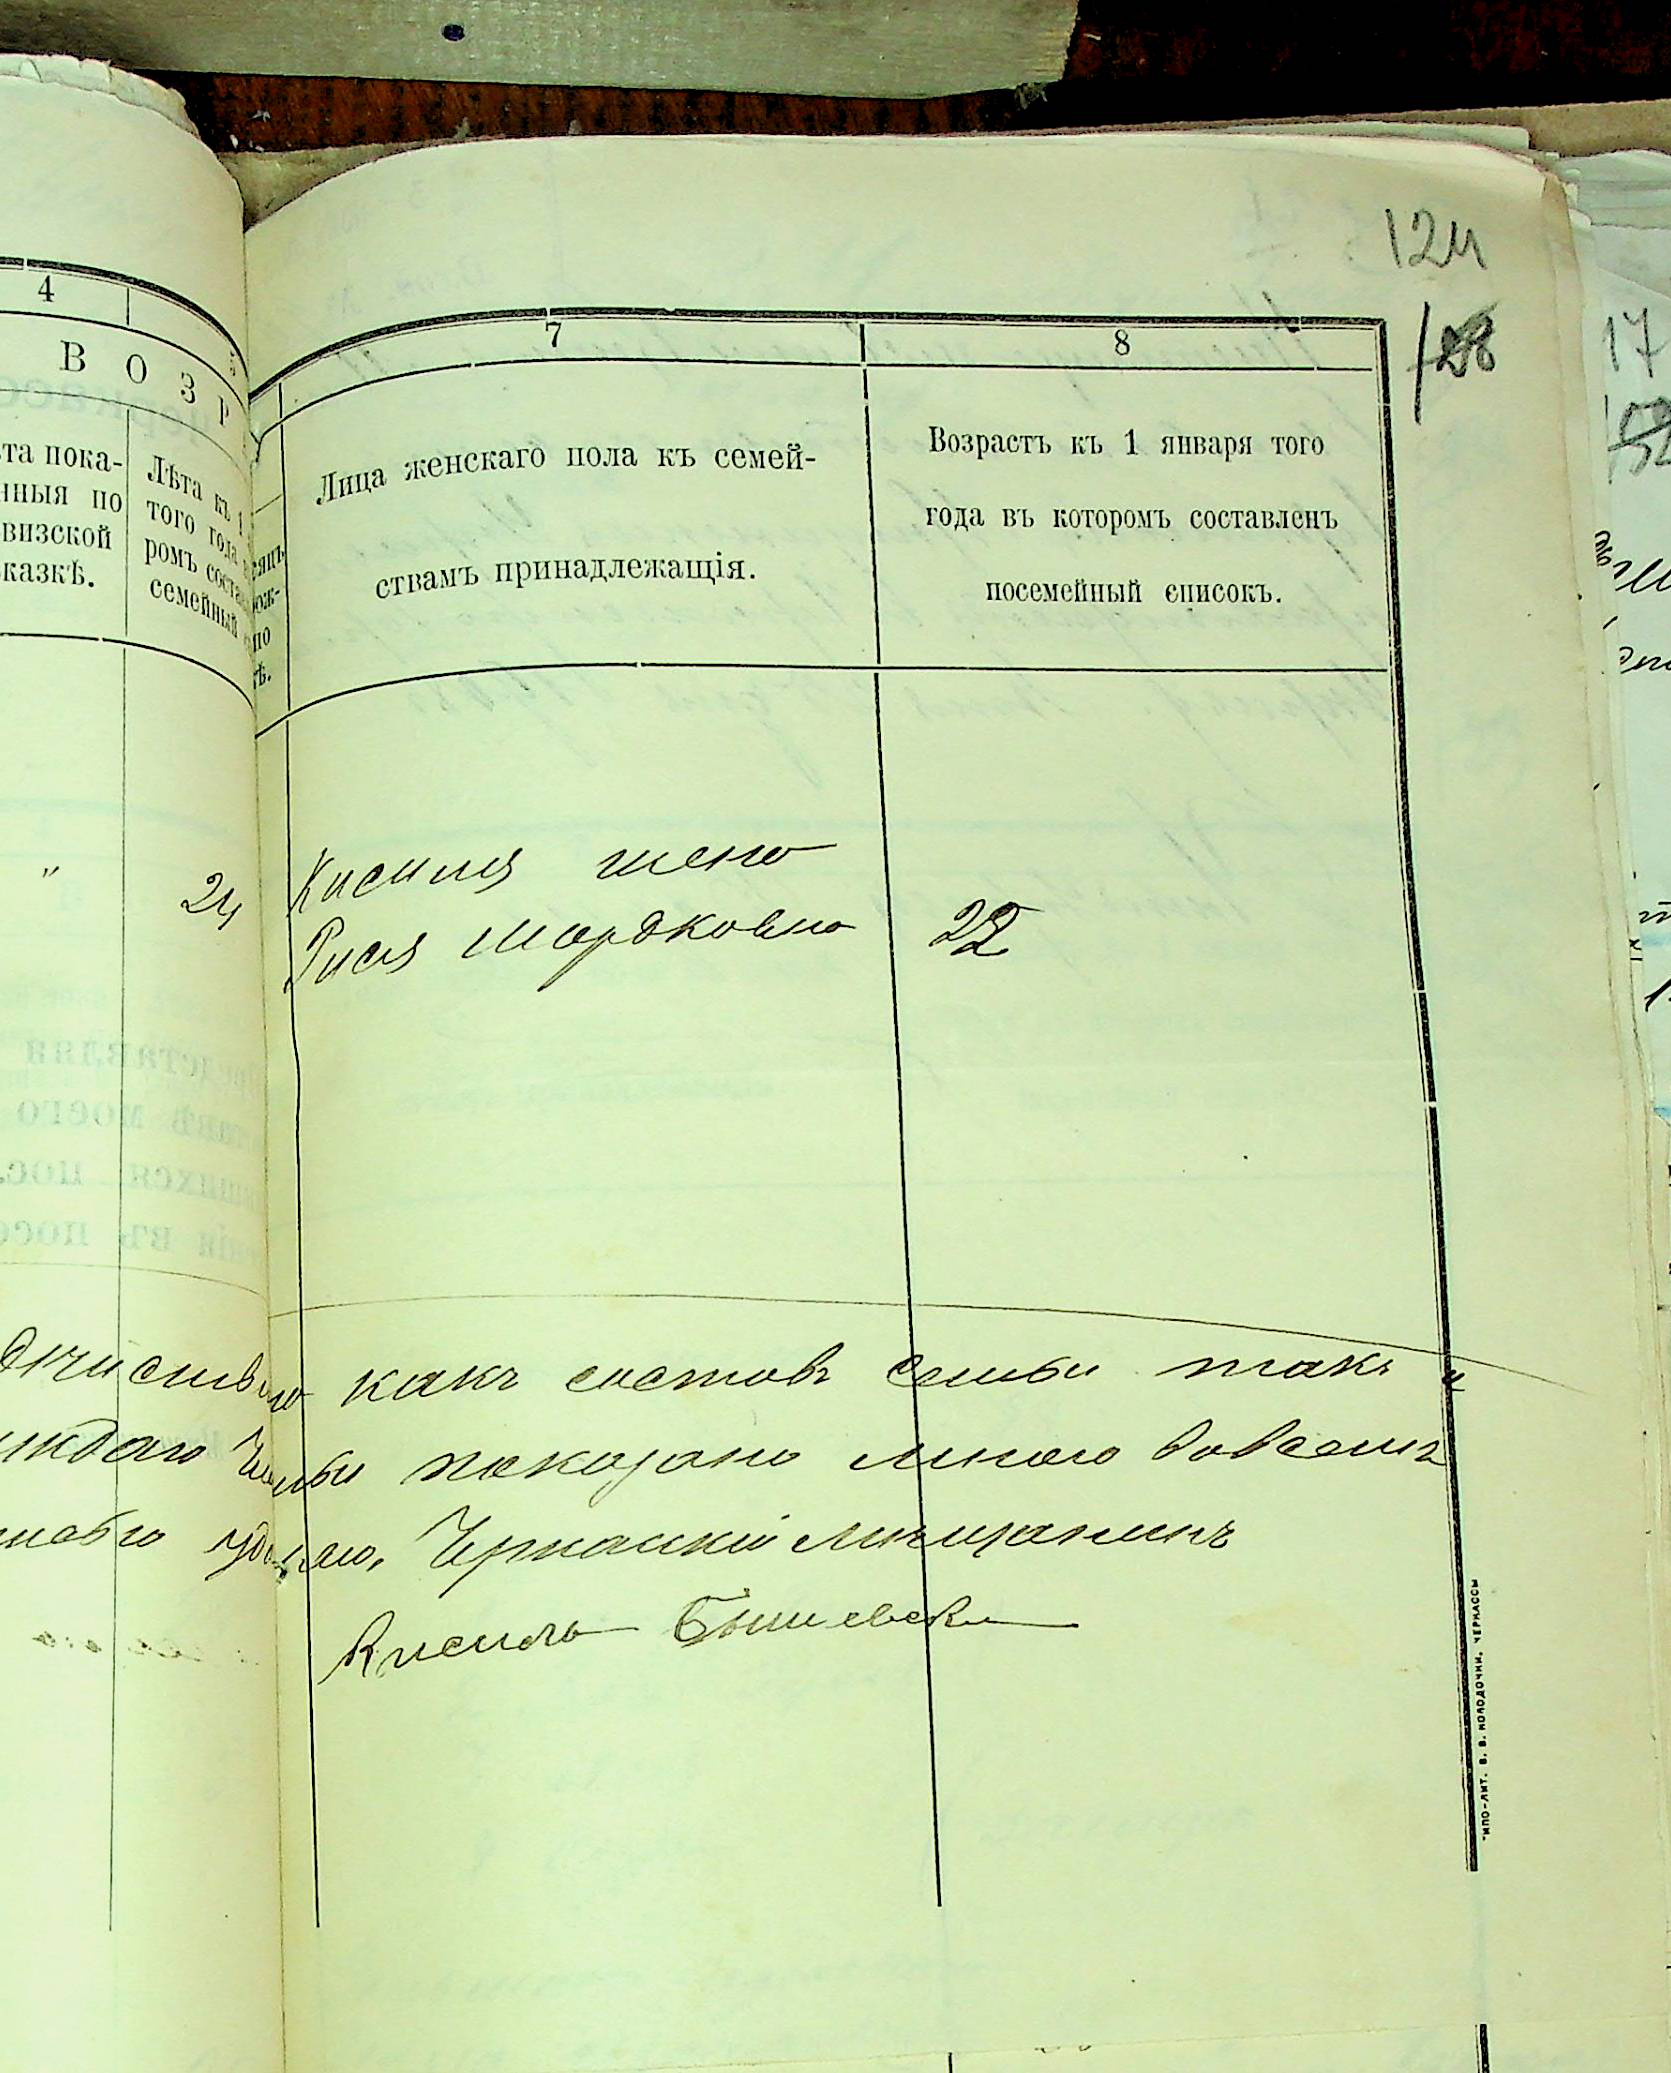 124
128
17
4
В О З Р
5
та пока-
нныя по
визской
казкѣ.
Лѣта къ 1
того года
ромъ соста
семейный
7
8
Лица женскаго пола къ семей-
ствамъ принадлежащія.
Возрастъ къ 1 января того
года въ которомъ составленъ
посемейный списокъ.
" 24
Кисиля жена
Рися Мордковна 22
какъ составъ семьи такъ и
показано мною вовсемъ
Черкаскій мѣщанинъ
Кисиль Бышевски
ТИПО-ЛИТ. В. В. КОЛОДОЧКИ, ЧЕРКАССЫ